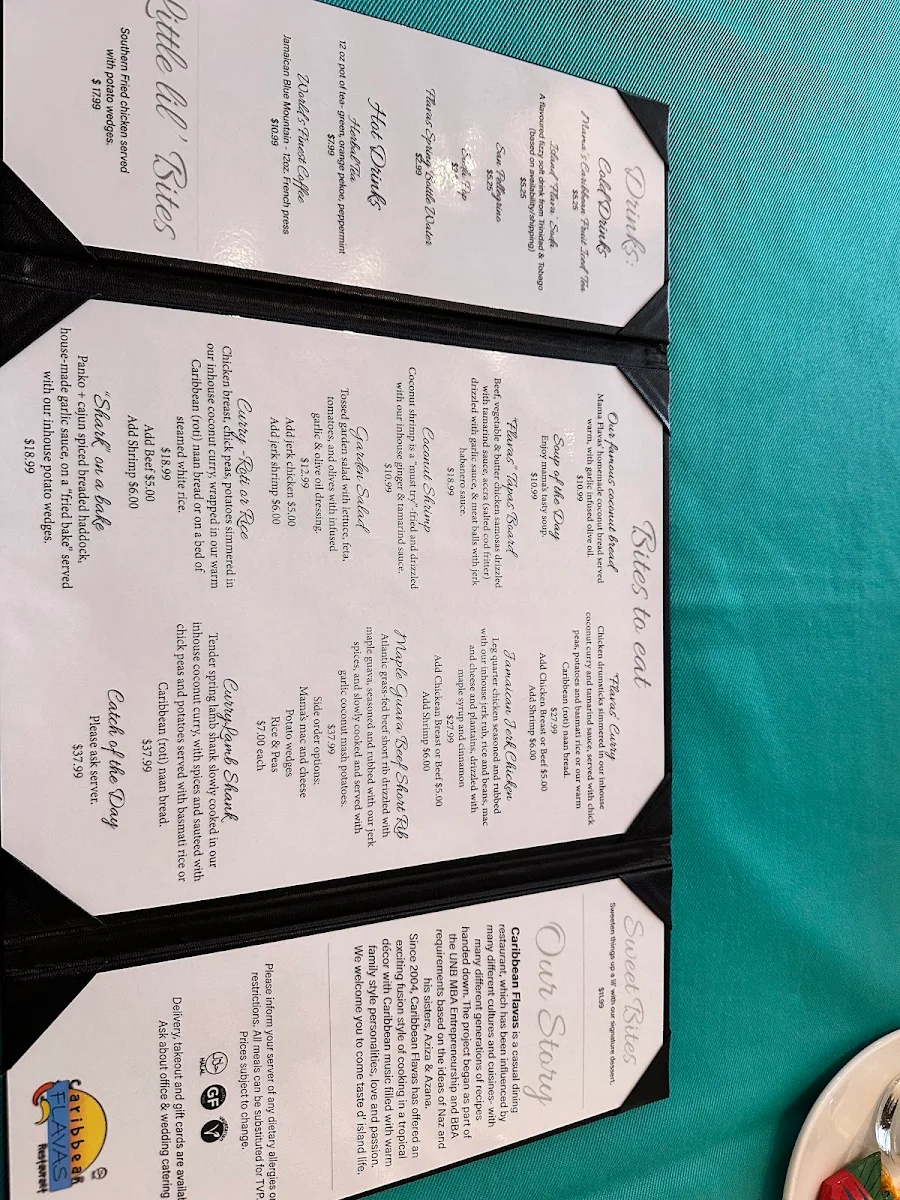 Drinks:
Cold Drinks
Mama's Caribbean Fruit Iced Tea
$5.25
Island "Flava" Soda
A flavoured fizzy soft drink from Trinidad & Tobago
(based on availability/shipping)
$5.25
San Pellegrino
$5.25
Soda Pop
Flavas Spring Bottle Water
$2.99
Hot Drinks
Herbal Tea
12 oz pot of tea- green, orange pekoe, peppermint
$7.99
World's Finest Coffee
Jamaican Blue Mountain - 12oz. French press
$10.99
Little lil' Bites
Southern Fried chicken served
with potato wedges.
$ 17.99
Bites to eat
Our famous coconut bread
Mama Flavas' homemade coconut bread served
warm, with garlic infused olive oil.
$10.99
Soup of the Day
Enjoy mama's tasty soup.
$10.99
"Flavas" Tapas Board
Beef, vegetable & butter chicken samosas drizzled
with tamarind sauce, accra (salted cod fritter)
drizzled with garlic sauce & meat balls with jerk
habanero sauce.
$18.99
Coconut Shrimp
Coconut shrimp is a "must try"-fried and drizzled
with our inhouse ginger & tamarind sauce.
$10.99
Garden Salad
Tossed garden salad with lettuce, feta,
tomatoes, and olives with infused
garlic & olive oil dressing.
$12.99
Add jerk chicken $5.00
Add jerk shrimp $6.00
Curry -Roti or Rice
Chicken breast, chick peas, potatoes simmered in
our inhouse coconut curry, wrapped in our warm
Caribbean (roti) naan bread or on a bed of
steamed white rice.
$18.99
Add Beef $5.00
Add Shrimp $6.00
"Shark" on a bake
Panko + cajun spiced breaded haddock,
house-made garlic sauce, on a "fried bake" served
with our inhouse potato wedges.
$18.99
Flavas' Curry
Chicken drumsticks simmered in our inhouse
coconut curry and tamarind sauce, served with chick
peas, potatoes and basmati rice or our warm
Caribbean (roti) naan bread.
$27.99
Add Chicken Breast or Beef $5.00
Add Shrimp $6.00
Jamaican Jerk Chicken
Leg quarter chicken seasoned and rubbed
with our inhouse jerk rub, rice and beans, mac
and cheese and plantains, drizzled with
maple syrup and cinnamon
$27.99
Add Chickean Breast or Beef $5.00
Add Shrimp $6.00
Maple Guava Beef Short Rib
Atlantic grass-fed beef short rib drizzled with
maple guava, seasoned and rubbed with our jerk
spices, and slowly cooked and served with
garlic coconut mash potatoes.
$37.99
Side order options:
Mama's mac and cheese
Potato wedges
Rice & Peas
$7.00 each
Curry Lamb Shank
Tender spring lamb shank slowly cooked in our
inhouse coconut curry, with spices and sauteed with
chick peas and potatoes served with basmati rice or
Caribbean (roti) naan bread.
$37.99
Catch of the Day
Please ask server.
$37.99
Sweet Bites
Sweeten things up a lil' with our signature dessert.
$11.99
Our Story
Caribbean Flavas is a casual dining
restaurant, which has been influenced by
many different cultures and cuisines- with
many different generations of recipes
handed down. The project began as part of
the UNB MBA Entrepreneurship and BBA
requirements based on the ideas of Naz and
his sisters, Aziza & Azana.
Since 2004, Caribbean Flavas has offered an
exciting fusion style of cooking in a tropical
décor with Caribbean music filled with warm
family style personalities, love and passion.
We welcome you to come taste d' island life.
Please inform your server of any dietary allergies or
restrictions. All meals can be substituted for TVP.
Prices subject to change.
HALAL
GF
V
Delivery, takeout and gift cards are availab
Ask about office & wedding catering
Caribbean
FLAVAS
Restaurant